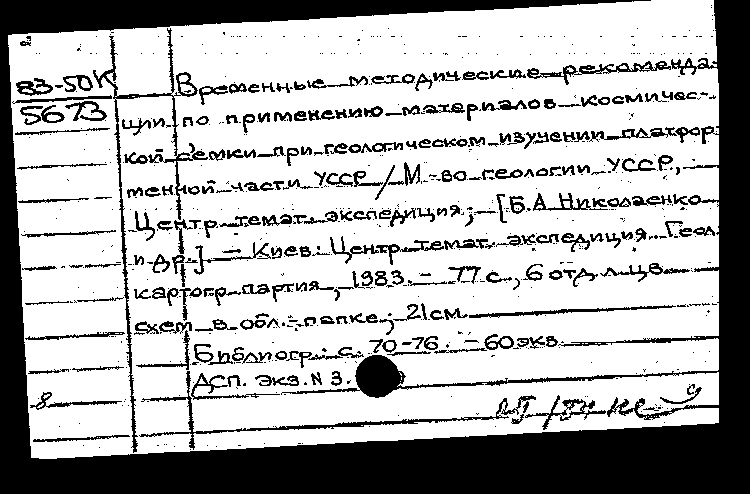 83-50К
5673
Временные методические рекоменда-
ции по применению материалов космичес-
кой съемки при геологическом изучении платфор
менной части УССР / М-во геологии УССР,
Центр. темат. экспедиция; [Б.А. Николаенко
и др.]. – Киев: Центр. темат. экспедиция. Геол.
картогр. партия, 1983. – 77 с., 6 отд. л. цв.
схем в обл.-папке; 21 см.
Библиогр.: с. 70-76. – 60 экз.
ДСП. экз. N 3.
8